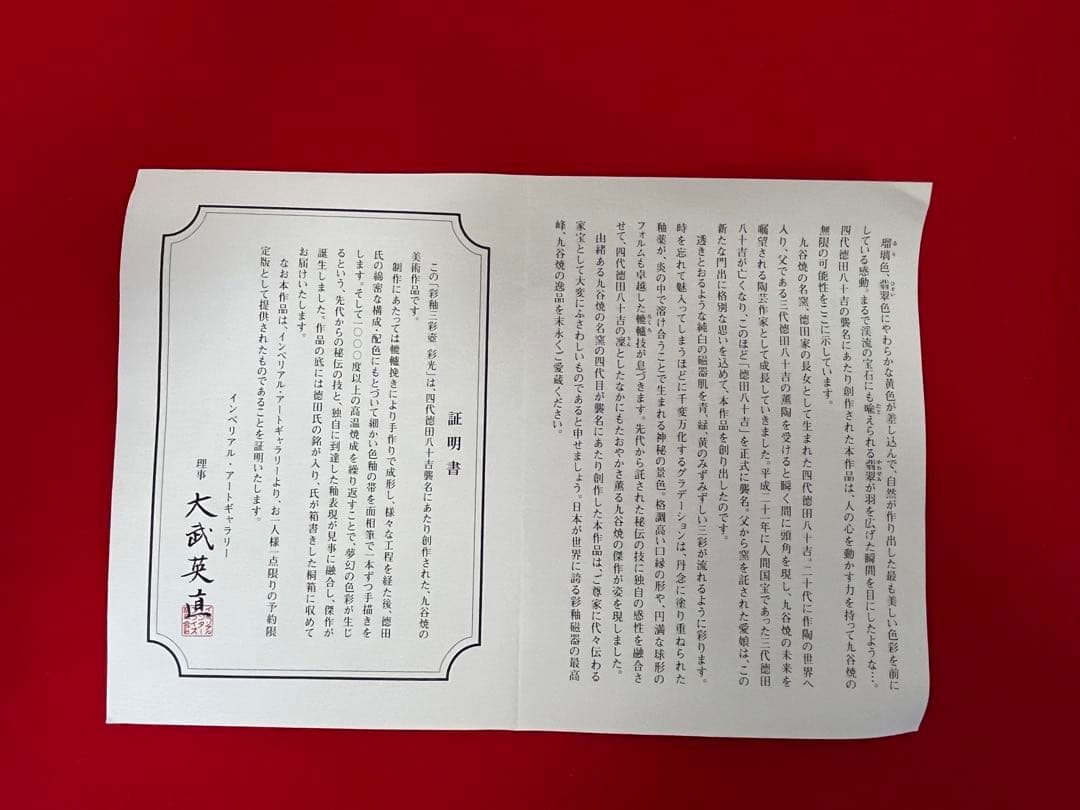 瑠璃色、翡翠色にやわらかな黄色が差し込んで、自然が作り出した最も美しい色彩を前に
している感動。まるで渓流の宝石にも喩えられる翡翠が羽を広げた瞬間を目にしたような…。
四代徳田八十吉の襲名にあたり創作された本作品は、人の心を動かす力を持って九谷焼の
無限の可能性をここに示しています。
九谷焼の名窯、徳田家の長女として生まれた四代徳田八十吉。二十代に作陶の世界へ
入り、父である三代徳田八十吉の薫陶を受けると瞬く間に頭角を現し、九谷焼の未来を
嘱望される陶芸作家として成長していきました。平成二十一年に人間国宝であった三代徳田
八十吉が亡くなり、このほど「徳田八十吉」を正式に襲名。父から窯を託された愛娘は、この
新たな門出に格別な思いを込めて、本作品を創り出したのです。
透きとおるような純白の磁器肌を青、緑、黄のみずみずしい三彩が流れるように彩ります。
時を忘れて魅入ってしまうほどに千変万化するグラデーションは、丹念に塗り重ねられた
釉薬が、炎の中で溶け合うことで生まれる神秘の景色。格調高い口縁の形や、円満な球形の
フォルムも卓越した轆轤技が息づきます。先代から託された秘伝の技に独自の感性を融合さ
せて、四代徳田八十吉の凜としたなかにもたおやかさ薫る九谷焼の傑作が姿を現しました。
由緒ある九谷焼の名窯の四代目が襲名にあたり創作した本作品は、ご尊家に代々伝わる
家宝として大変にふさわしいものであると申せましょう。日本が世界に誇る彩釉磁器の最高
峰、九谷焼の逸品を末永くご愛蔵ください。
証明書
この「彩釉三彩壺 彩光」は、四代徳田八十吉襲名にあたり創作された、九谷焼の
美術作品です。
制作にあたっては轆轤挽きにより手作りで成形し、様々な工程を経た後、徳田
氏の綿密な構成、配色にもとづいて細かい色釉の帯を面相筆で一本ずつ手描きを
します。そして一〇〇〇度以上の高温焼成を繰り返すことで、夢幻の色彩が生じ
るという、先代からの秘伝の技と、独自に到達した釉表現が見事に融合し、傑作が
誕生しました。作品の底には徳田氏の銘が入り、氏が箱書きした桐箱に収めて
お届けいたします。
なお本作品は、インペリアル・アートギャラリーより、お一人様一点限りの予約限
定版として提供されたものであることを証明いたします。
インペリアル・アートギャラリー
理事 大武英真